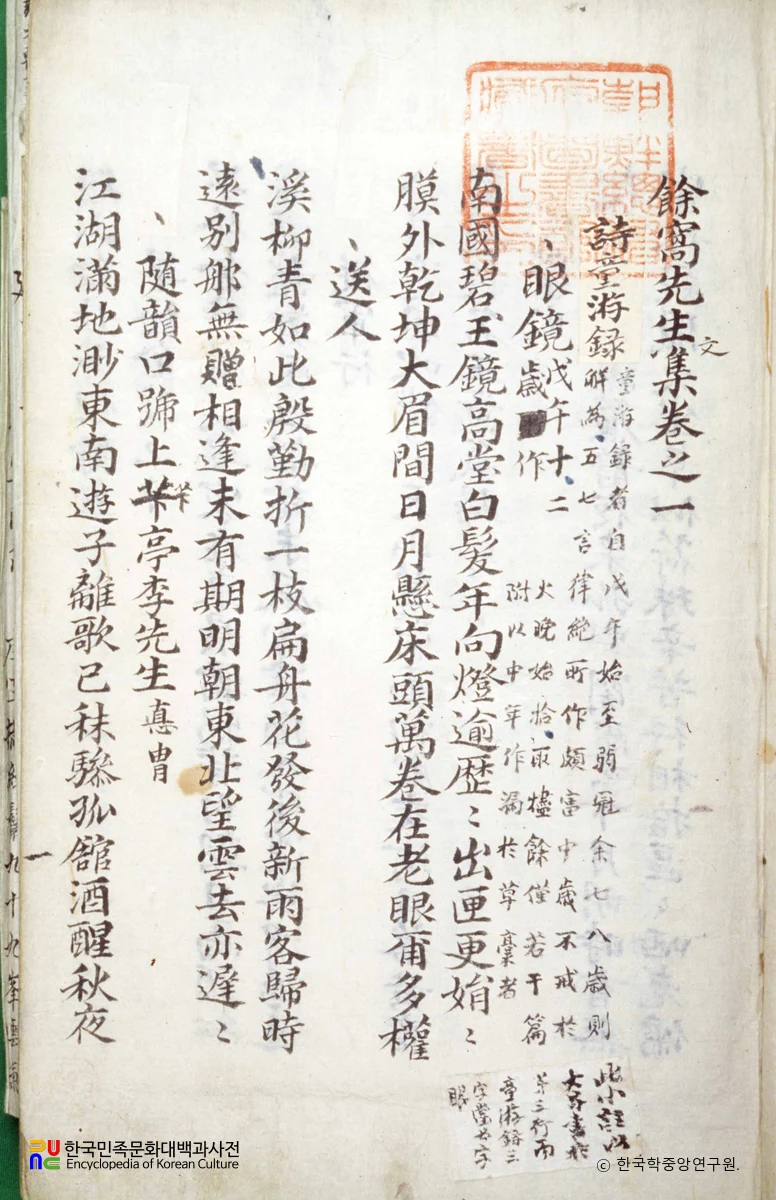 餘窩先生文集卷之一
詩 童游録
童游録者自戊年始至弱冠余七八歲則
觧為五七言律絶所作頗富中歲不戒於
火晚始拾取燼餘僅若干篇
附以中年作漏於草稾者
、眼鏡 戊午十二歲作
南國碧玉鏡高堂白髮年向燈逾歴〻出匣更娟〻
膜外乾坤大眉間日月懸床頭萬卷在老眼爾多權
、送人
溪柳青如此慇勤折一枝扁舟花發後新雨客歸時
遠別那無贈相逢未有期明朝東北望雲去亦遲〻
、随韻口號上苄亭李先生悳胄
江湖滿地渺東南遊子離歌已秣驂孤舘酒醒秋夜
此小註以
大字書於
第三行而
童游録三
字當如字
眼
한국민족문화대백과사전
Encyclopedia of Korean Culture
© 한국학중앙연구원.